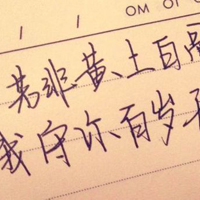 OM
若非黄土白骨
我守你百岁